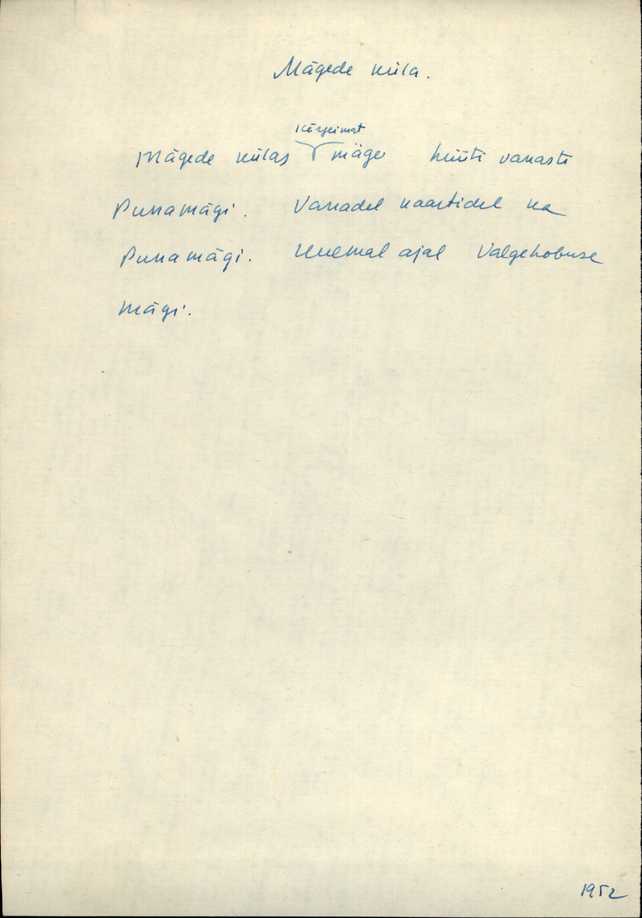 Mägede küla.
kõrgeimat
Mägede külas mäge hüüti vanasti
Punamägi. Vanadel kaartidel ka
Punamägi. Uuemal ajal Valgehobuse
mägi.
1952